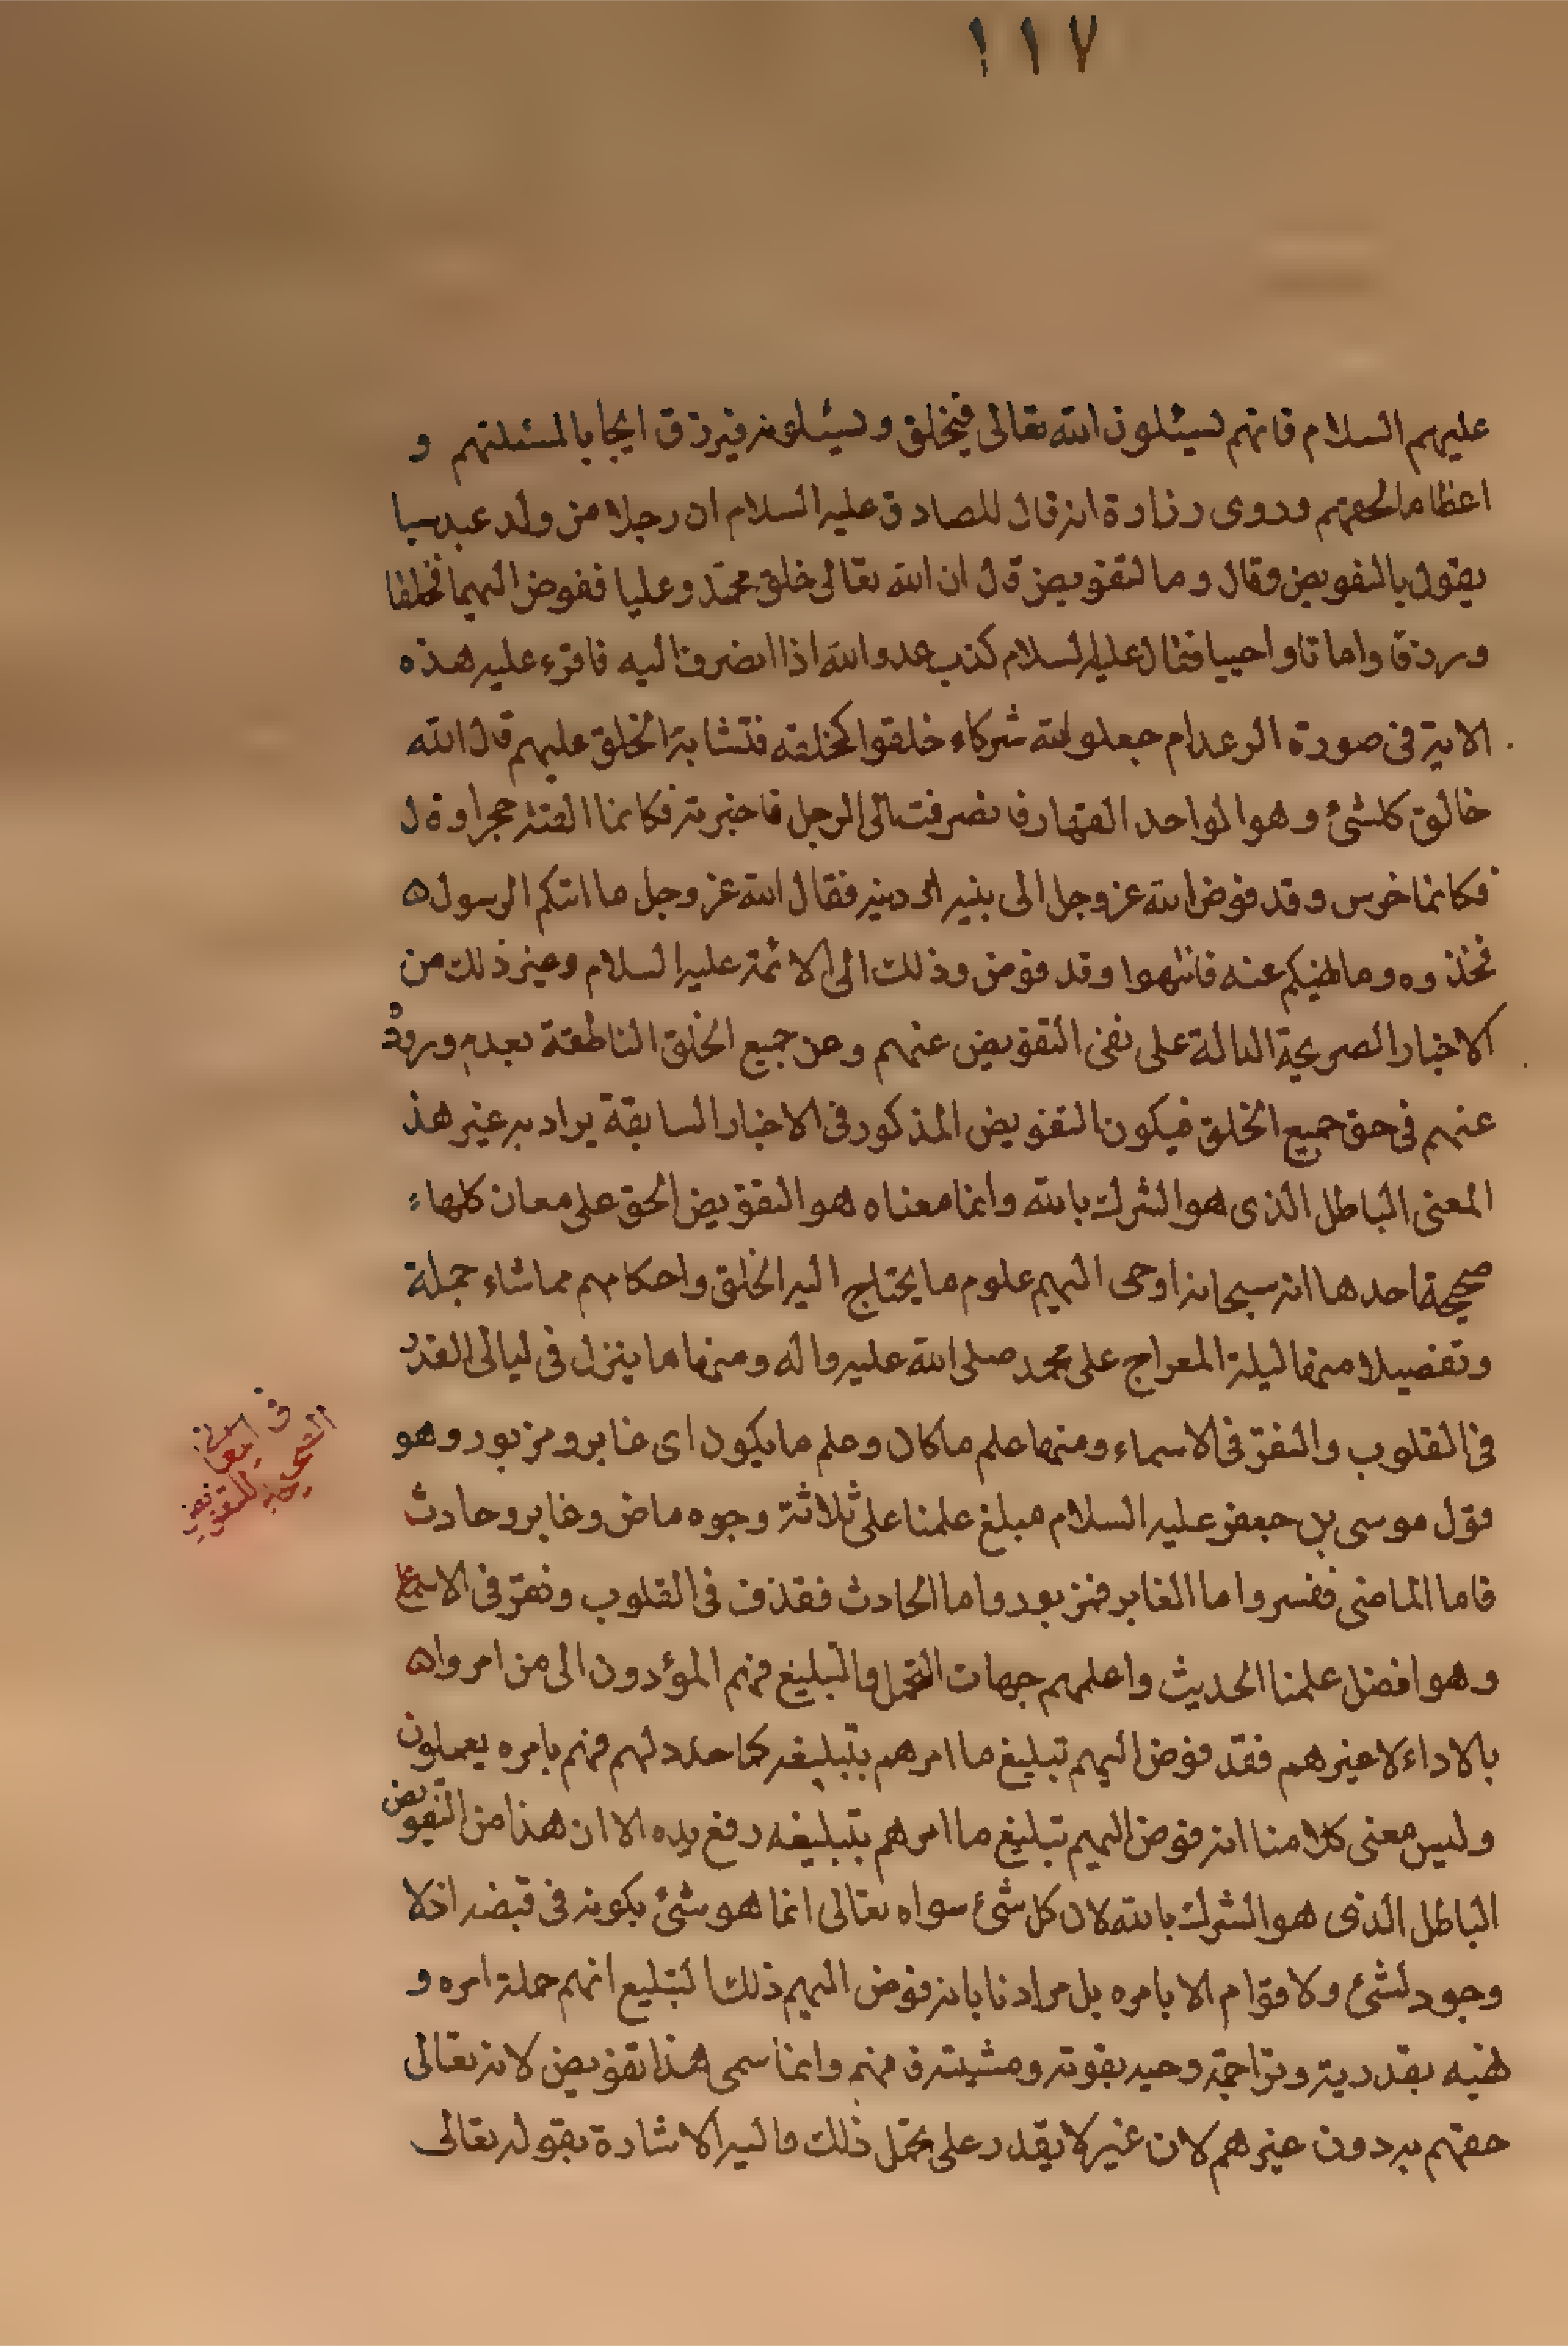 ١١٧
عليهم السلام فانهم يسئلون الله تعالى فيخلق ويسئلونه فيرزق ايجابا لمسئلتهم و
اعظاما لحقهم وروى زرارة انه قال للصادق عليه السلام ان رجلا من ولد عبد سبا
يقول بالتفويض وقال وما لتفويض قال ان الله تعالى خلق محمد وعليا ففوض اليهما فخلقا
ورزقا واماتا واحييا فقال عليه السلام كذب عدو الله اذا انصرف اليه فاقرء عليه هذه
الاية فى صورة الرعد ام جعلو لله شركاء خلقوا كخلقه فتشابه الخلق عليهم قال الله
خالق كلشئ وهو الواحد القهار فانصرفت الى الرجل فاخبرته فكانما القته حجرا وقال
فكانما خرس وقد فوض الله عز وجل الى بنيه الى دينه فقال الله عز وجل ما اتيكم الرسول
فخذوه وما نهيكم عنه فانتهوا وقد فوض وذلك الى الائمة عليه السلام وغير ذلك من
الاخبار الصريحة الدالة على نفى التفويض عنهم وعن جميع الخلق الناطقة بعدم وروده
عنهم فى حق جميع الخلق فيكون التفويض المذكور فى الاخبار السابقة يراد به غير هذ
المعنى الباطل الذى هو الشرك بالله وانما معناه هو التفويض الحق على معان كلها
صحيحة احدها انه سبحانه اوحى اليهم علوم ما يحتاج اليه الخلق واحكامهم مما شاء جملة
وتفصيلا منها ليلة المعراج على محمد صلى الله عليه واله ومنها ما ينزل فى ليالى القدر
فى القلوب والنقر فى الاسماع ومنها علم ما كان وعلم ما يكون اى غابر ومزبور وهو
فى معانى
الصحيحة للتفويض
قول موسى بن جعفر عليه السلام مبلغ علمنا على ثلاثة وجوه ماض وغابر وحادث
فاما الماضى ففسر واما الغابر فمزبور واما الحادث فقذف فى القلوب ونقر فى الاسماع
وهو افضل علمنا الحديث واعلمهم جهات التحمل والتبليغ فهم المؤدون الى من امروا
بالاداء لا غيرهم فقد فوض اليهم تبليغ ما امرهم بتبليغه كما حدد لهم فهم بامره يعملون
وليس معنى كلامنا انه فوض اليهم تبليغ ما امرهم بتبليغه رفع يده الا ان هذا من التفويض
الباطل الذى هو الشرك بالله لان كل شئ سواه تعالى انما هو شئ بكونه فى قبضه اذ لا
وجود لشئ ولا قوام الا بامره بل مرادنا بانه فوض اليهم ذلك التبليغ انهم حملة امره و
نهيه بقدرته وتراجمة وحيه بقوته ومشيته فهم وانما سمى هذا تفويض لانه تعالى
حقهم به دون غيرهم لان غيره لا يقدر على تحمل ذلك واليه الاشارة بقوله تعالى